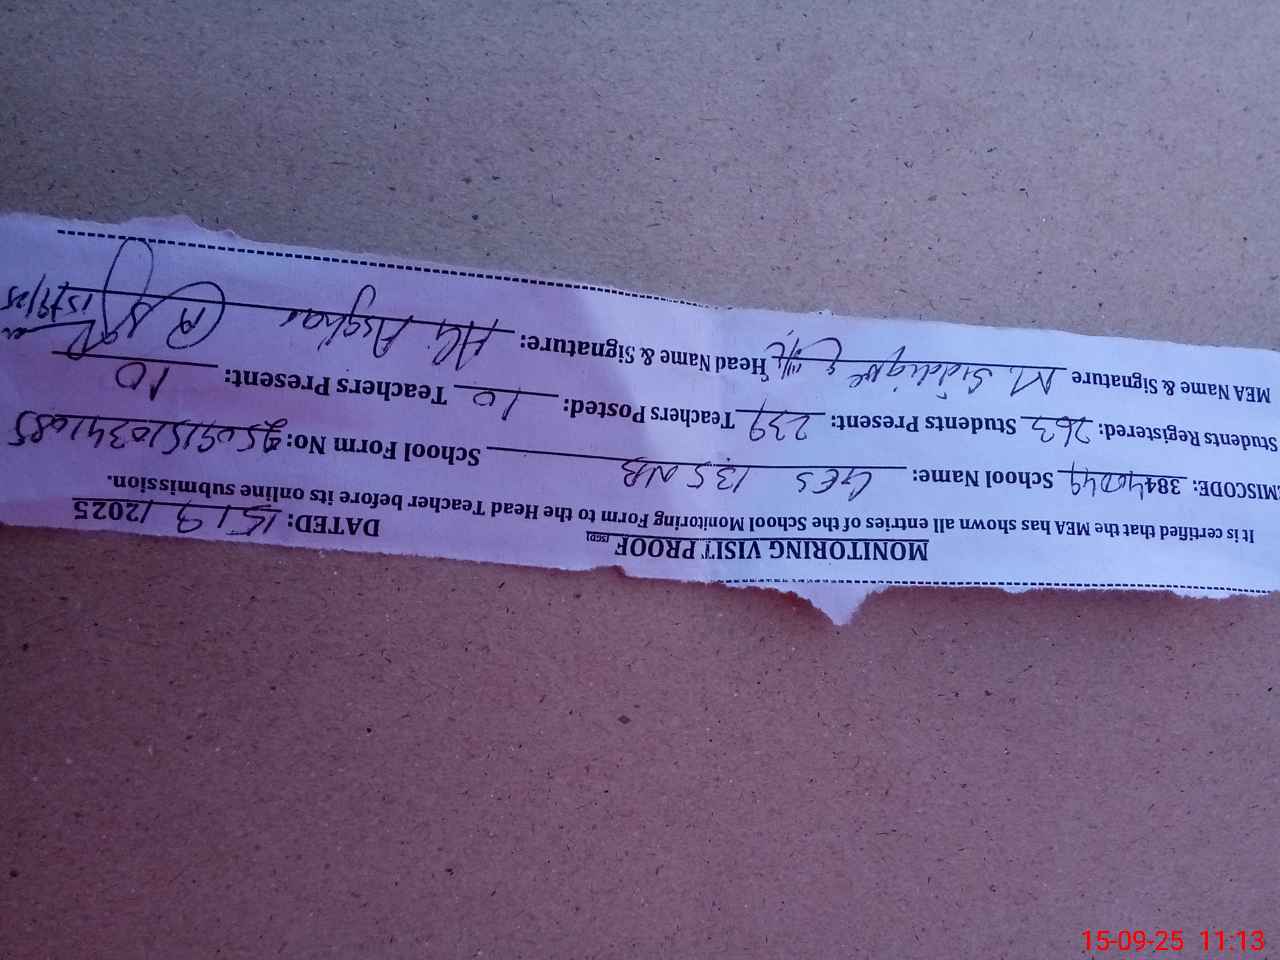 MONITORING VISIT PROOF [SGD] DATED: 15/9/2025
It is certified that the MEA has shown all entries of the School Monitoring Form to the Head Teacher before its online submission.
EMISCODE: 38440049 School Name: GES 135NB School Form No: 25091510341685
Students Registered: 263 Students Present: 239 Teachers Posted: 10 Teachers Present: 10
MEA Name & Signature M. Siddique Head Name & Signature: Ali Asghar
15/9/25
15-09-25 11:13